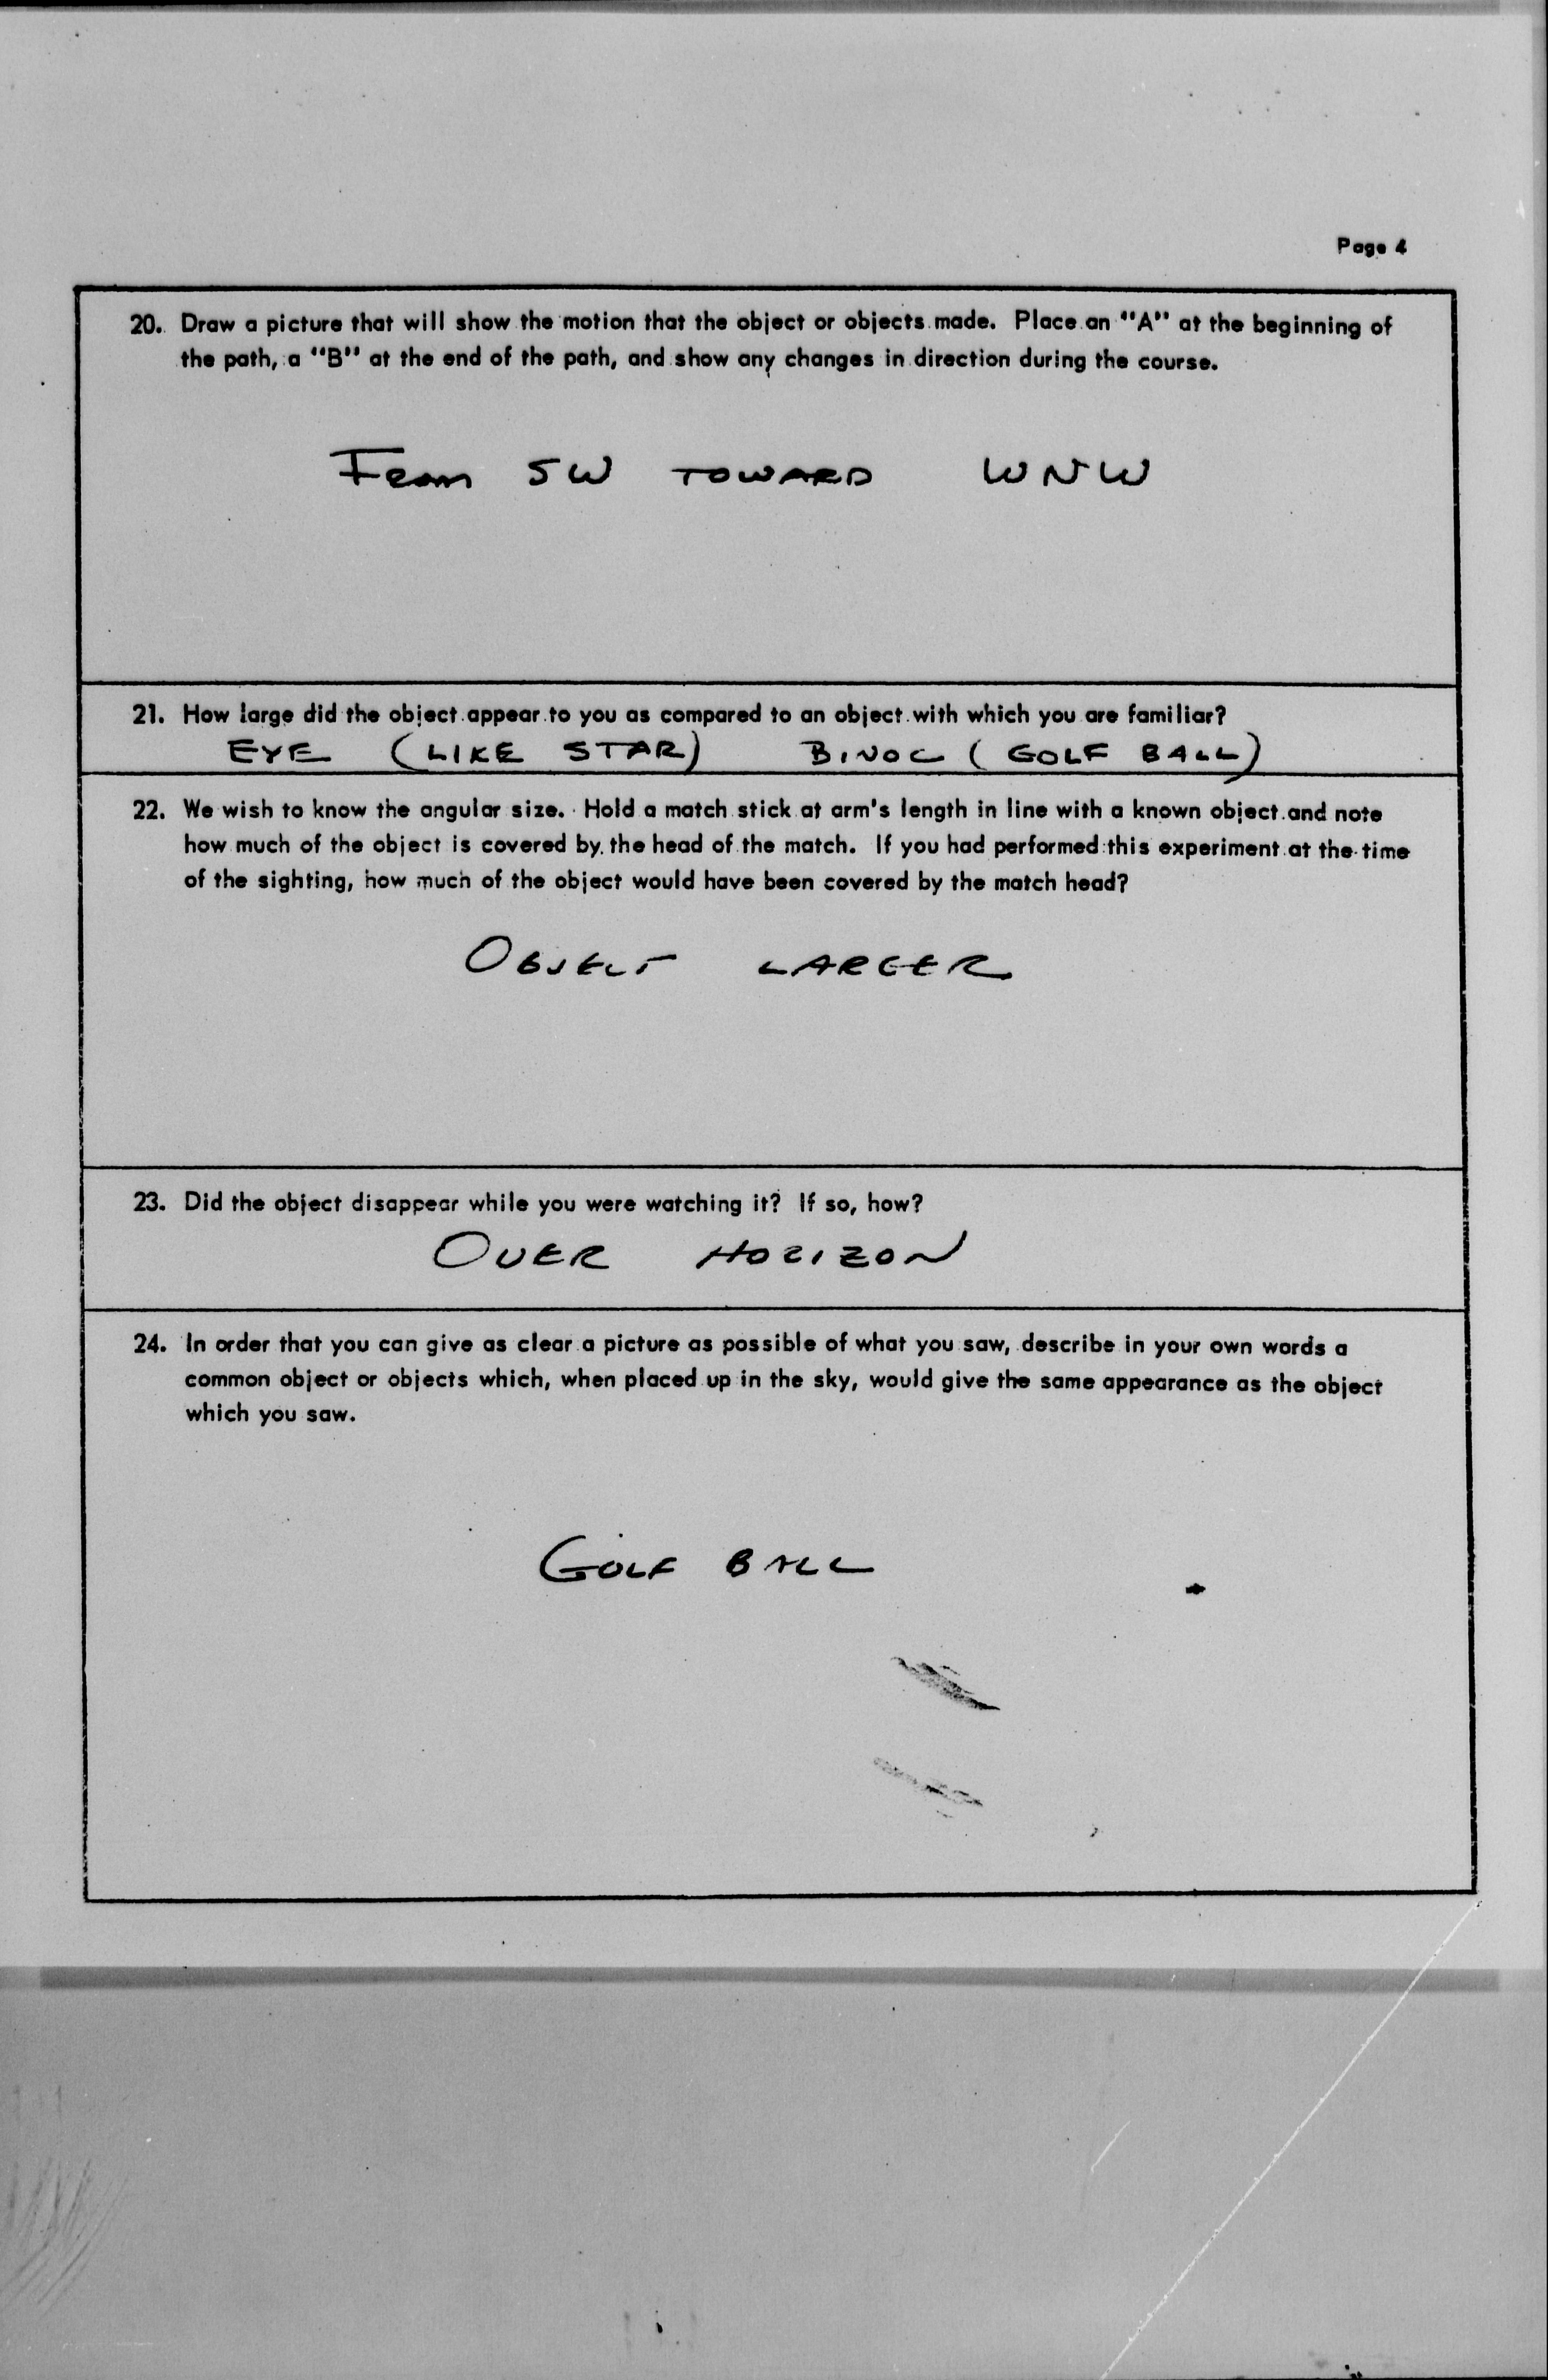 Page 4
20. Draw a picture that will show the motion that the object or objects made. Place an "A" at the beginning of
the path, a "B" at the end of the path, and show any changes in direction during the course.
From SW TOWARD WNW
21. How large did the object appear to you as compared to an object with which you are familiar?
EYE (LIKE STAR) BINOC (GOLF BALL)
22. We wish to know the angular size. Hold a match stick at arm's length in line with a known object and note
how much of the object is covered by the head of the match. If you had performed this experiment at the time
of the sighting, how much of the object would have been covered by the match head?
OBJECT LARGER
23. Did the object disappear while you were watching it? If so, how?
OVER HORIZON
24. In order that you can give as clear a picture as possible of what you saw, describe in your own words a
common object or objects which, when placed up in the sky, would give the same appearance as the object
which you saw.
GOLF BALL